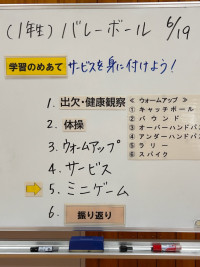 (1年生) バレーボール 6/19
学習のめあて サービスを身に付けよう!
1. 出欠・健康観察
2. 体操
3. ウォームアップ
4. サービス
5. ミニゲーム
6. 振り返り
≪ ウォームアップ ≫
① キャッチボール
② バウンド
③ オーバーハンドパス
④ アンダーハンドパス
⑤ ラリー
⑥ スパイク